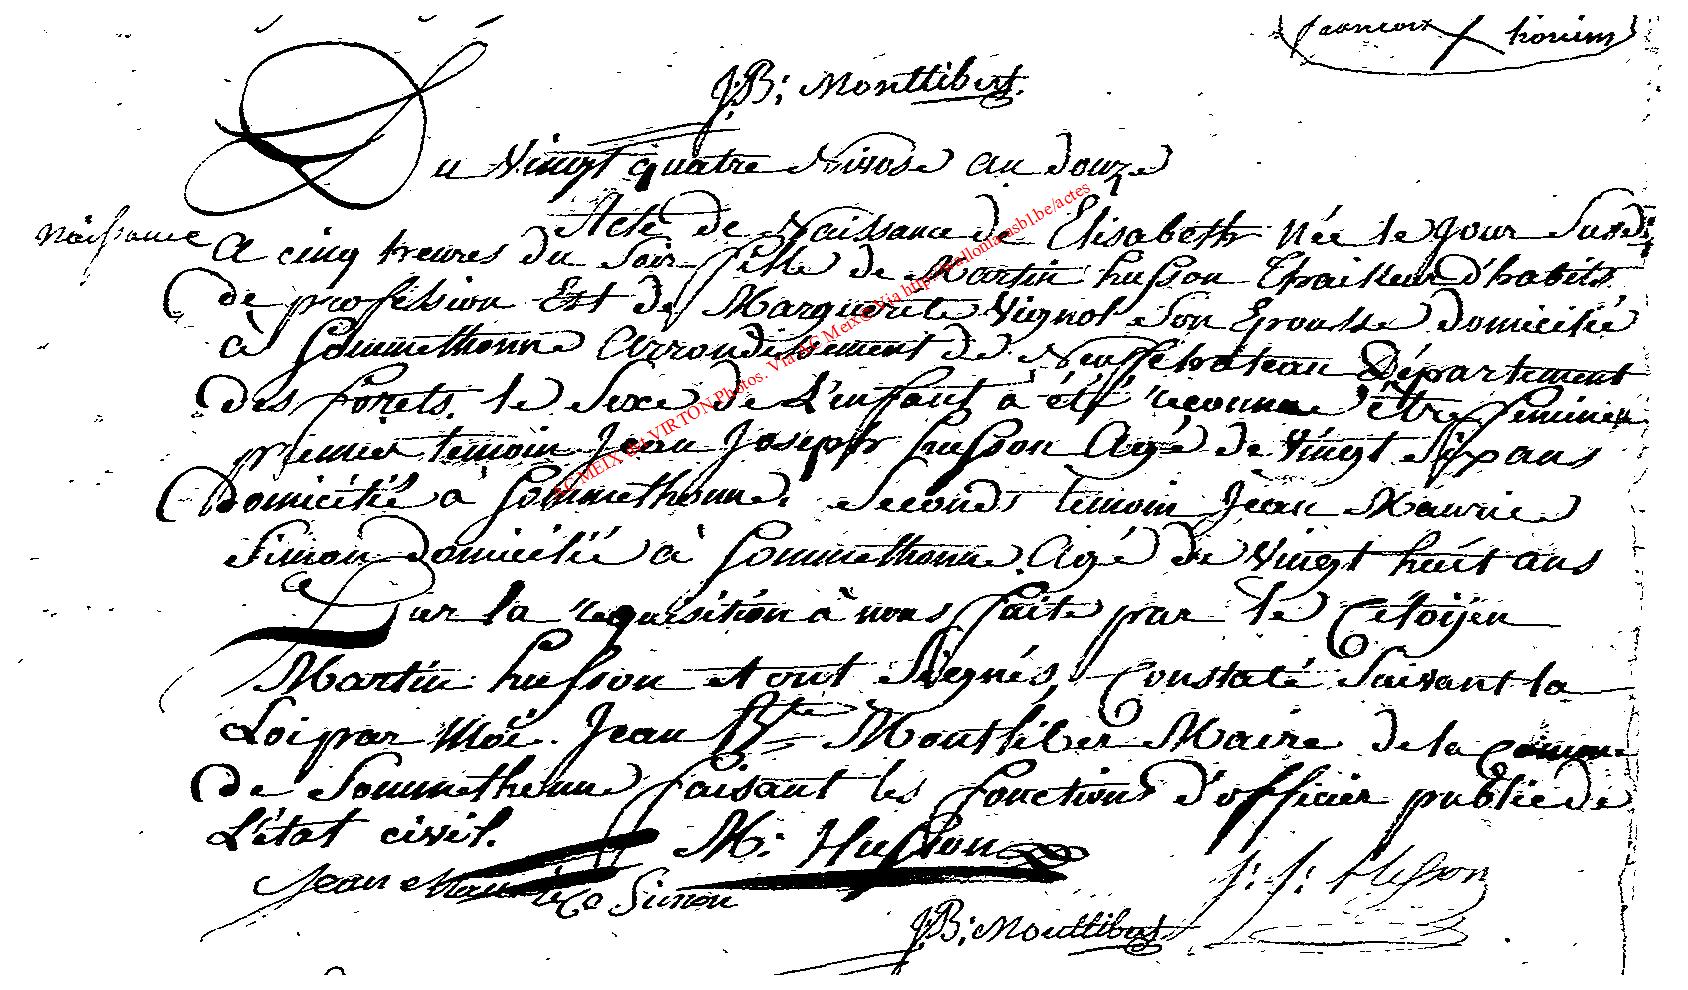 francois thorim
J:B: Monttibert.
Du Vingt quatre Nivose an douze
naissance
Acte de Naissance de Elisabeth Née le Jour Susdi
a cinq heures du Soir fille de Martin husson thailleur d'habits
de profession Est de Marguerite Vignol Son Epousse domicilié
à Sommethonne arrondissement de Neuffchateau Département
des forets. le Sexe de L'enfant à été reconnue être feminin
premier temoin Jean Joseph husson Agé de Vingt Six ans
Domicilié à Sommethonne. Second temoin Jean Maurice
Simon domicilié à Sommethonne Agé de Vingt huit ans
Sur la requisition à nous faite par le Citoÿen
Martin husson et ont Signés, Constaté Suivant la
Loi par Moi. Jean Bte Montliber Maire de la Comune
de Sommethonne faisant les fonctions d'officier public de
L'état civil.
M: Husson
Jean Maurice Simon
J: J: Husson
J:B: Monttibert
AC MEIX dvt VIRTON Photos. Via AC Meix. Via http://wallonia.asbl.be/actes